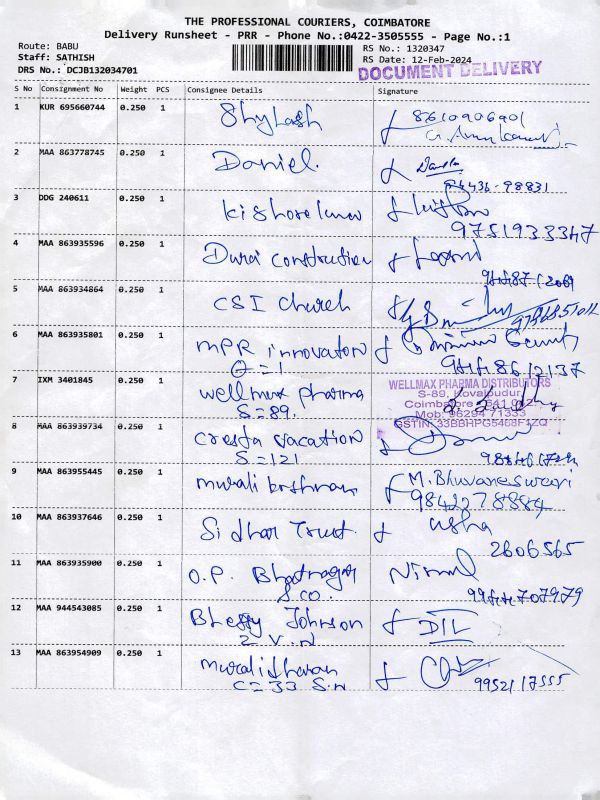 THE PROFESSIONAL COURIERS, COIMBATORE
Delivery Runsheet - PRR - Phone No.:0422-3505555 - Page No.:1
Route: BABU
Staff: SATHISH
DRS No.: DCJB132034701
RS No.: 1320347
RS Date: 12-Feb-2024
DOCUMENT DELIVERY
S No Consignment No Weight PCS Consignee Details Signature
1 KUR 695660744 0.250 1 Shylash 8610906901
2 MAA 863778745 0.250 1 Daniel.
94436-98831
3 DDG 240611 0.250 1 kishorekumar
9751933347
4 MAA 863935596 0.250 1 Durai construction
5 MAA 863934864 0.250 1 CSI church
6 MAA 863935801 0.250 1 MPR innovation
94448612137
7 IXM 3401845 0.250 1 wellmax pharma
S=89.
WELLMAX PHARMA DISTRIBUTORS
S-89, Kovaipudur,
Coimbatore
Mob: 96294 71333
8 MAA 863939734 0.250 1 cresta vacation
S=121
9 MAA 863955445 0.250 1 murali krishnan M. Bhuvaneswari
9842278884
10 MAA 863937646 0.250 1 Sidhar Trust. usha
2606565
11 MAA 863935900 0.250 1 O.P. Bhatnagar Nirmal
12 MAA 944543085 0.250 1 Blessy Johnson DIL
2 V.N
13 MAA 863954909 0.250 1 muralidharan
C=33 S.N 9952117555